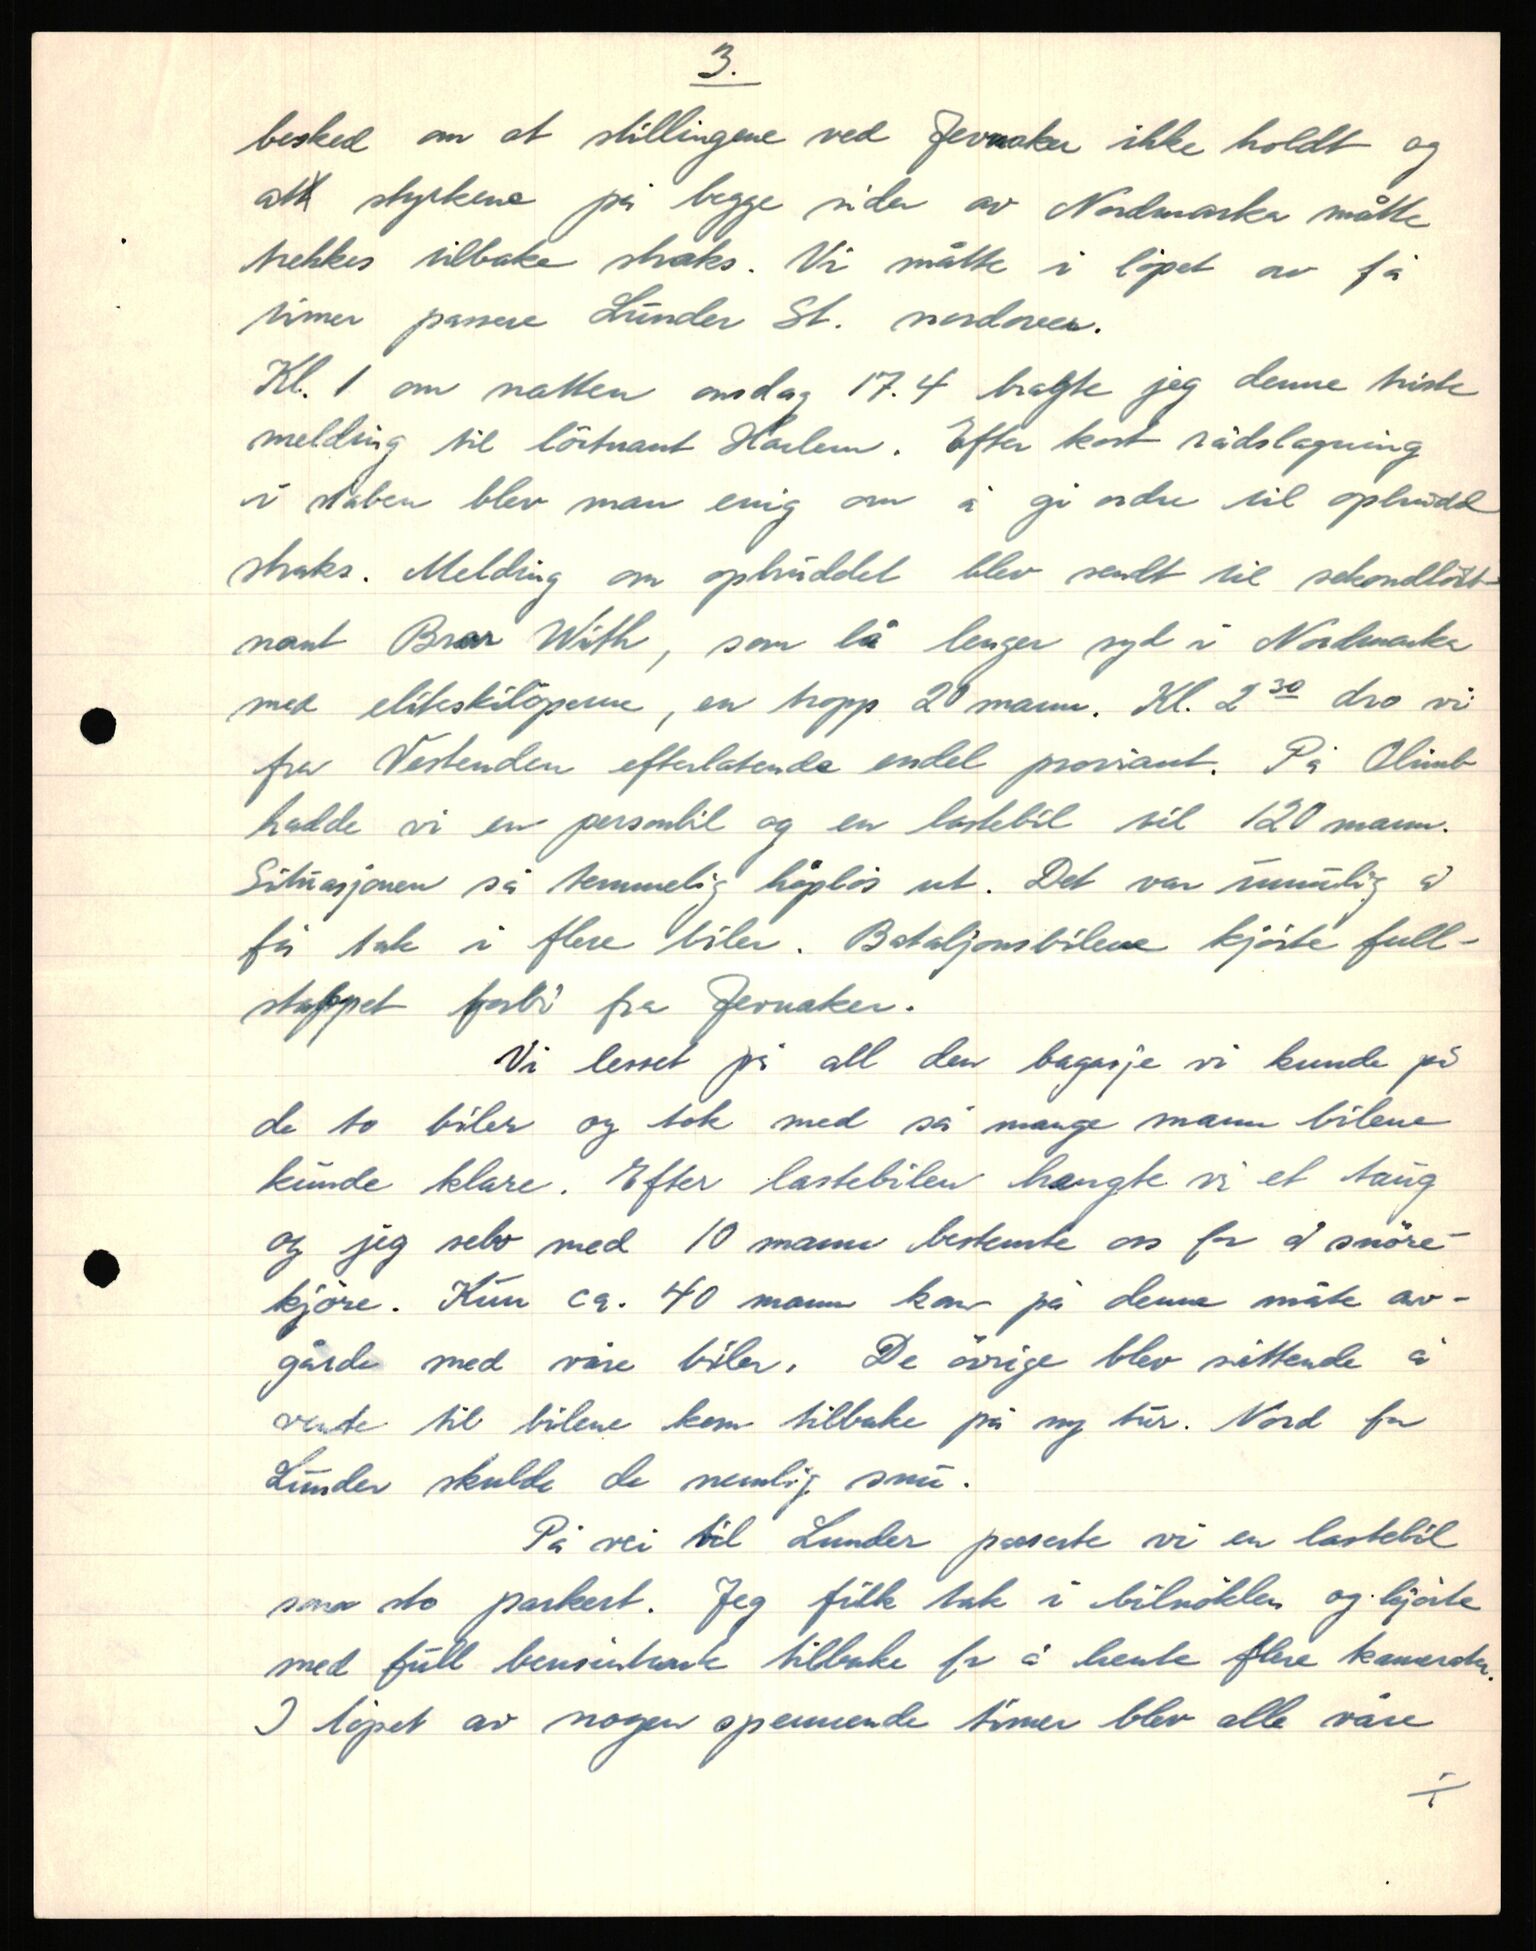 3.
besked om at stillingene ved Jevnaker ikke holdt og
att styrkene på begge sider av Nordmarka måtte
trekkes tilbake straks. Vi måtte i löpet av få
timer passere Lunder St. nordover.
Kl. 1 om natten onsdag 17.4 bragte jeg denne triste
melding til löitnant Harlem. Efter kort rådslagning
i staben blev man enig om å gi ordre til opbrudd
straks. Melding om opbruddet blev sendt til sekondlöit-
nant Braar With, som lå lenger syd i Nordmarka
med eliteskilöperne, en tropp 20 mann. Kl. 2 30 dro vi
fra Vestenden efterlatende endel proviant. På Olimb
hadde vi en personbil og en lastebil til 120 mann.
Situasjonen så temmelig håplös ut. Det var umulig å
få tak i flere biler. Bataljonsbilene kjörte full-
stappet forbi fra Jevnaker.
Vi lesset på all den bagasje vi kunde på
de to biler og tok med så mange mann bilene
kunde klare. Efter lastebilen hengte vi et taug
og jeg selv med 10 mann bestemte oss for å snöre-
kjöre. Kun ca. 40 mann kom på denne måte av-
gårde med våre biler. De övrige blev sittende å
vente til bilene kom tilbake på ny tur. Nord for
Lunder skulde de nemlig snu.
På vei til Lunder passerte vi en lastebil
som sto parkert. Jeg fikk tak i bilnöklen og kjörte
med full bensintank tilbake for å hente flere kamerater.
I löpet av nogen spennende timer blev alle våre